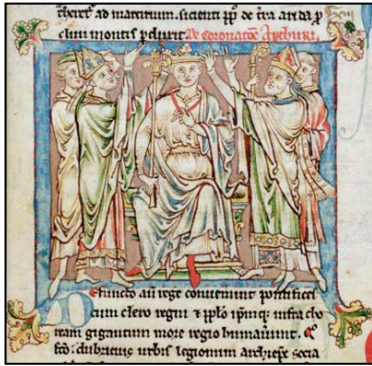 ad martirium. sicienti pp̄lo de t̄ra arida
montis De coronacōe Arthuri.
Defuncto aū rege convenerunt pontifices
cum clero regni ⁊ pp̄lo ip̄mq; infra cho
ream gigantum more regio humaverunt.
dubricius urbis legionum archiep̄c socia